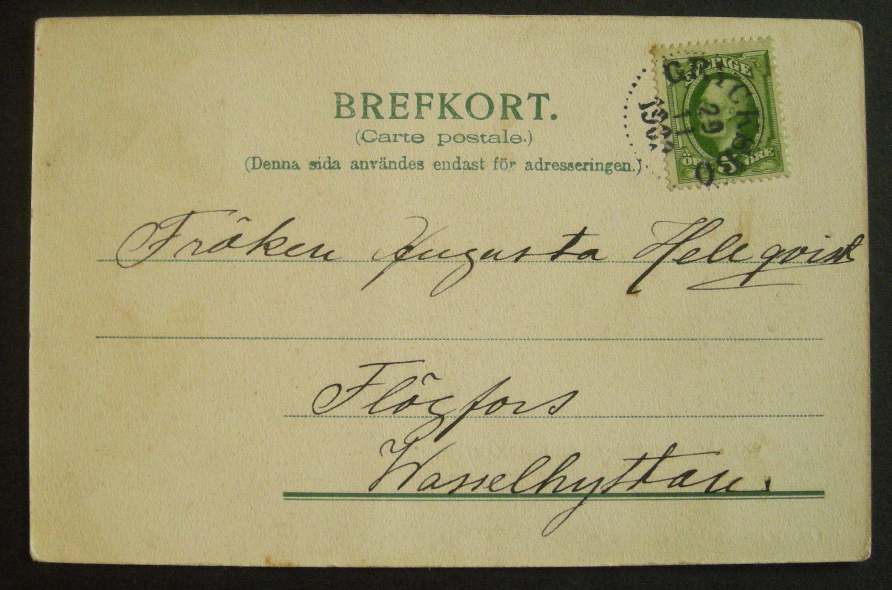 BREFKORT.
(Carte postale.)
(Denna sida användes endast för adresseringen.)
SVERIGE
ÖRE
29
11
1902
Fröken Augusta Hellqvist
Flögfors
Wasselhyttan.